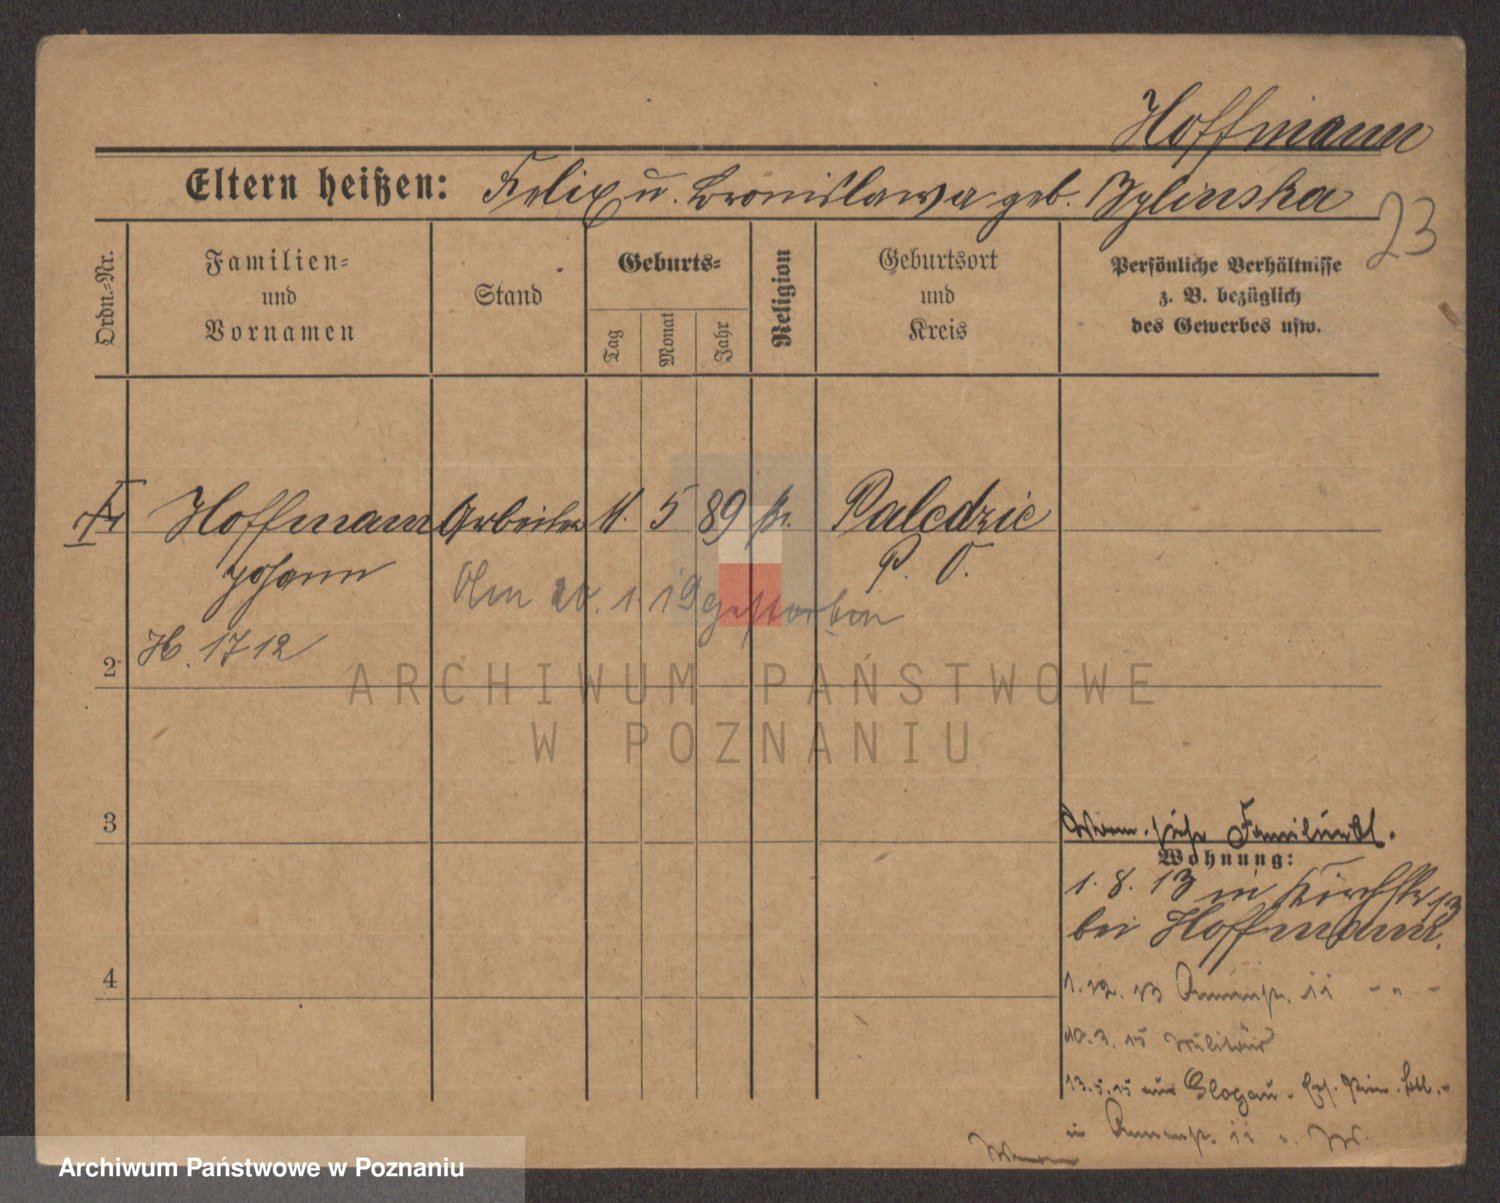 Hoffmann
Eltern heißen: Felix u. Bronislawa geb. Zylinska
23
Ordn.-Nr.
Familien- und Vornamen
Stand
Geburts-
Tag
Monat
Jahr
Religion
Geburtsort und Kreis
Persönliche Verhältnisse
z. B. bezüglich
des Gewerbes usw.
Hoffmann Arbeiter 11. 5 89 Paledzie
Johann P. O.
Am 20. 1. 19 gestorben
H. 1712
2
ARCHIWUM PAŃSTWOWE
W POZNANIU
3
siehe Familienbl.
Wohnung:
1. 8. 13 in Kirchstr. 13
bei Hoffmann.
4
1. 12. 13 Annenstr. 11 - " -
10. 3. 15 Militär
13. 5. 15 aus Glogau
Annenstr. 11
Archiwum Państwowe w Poznaniu